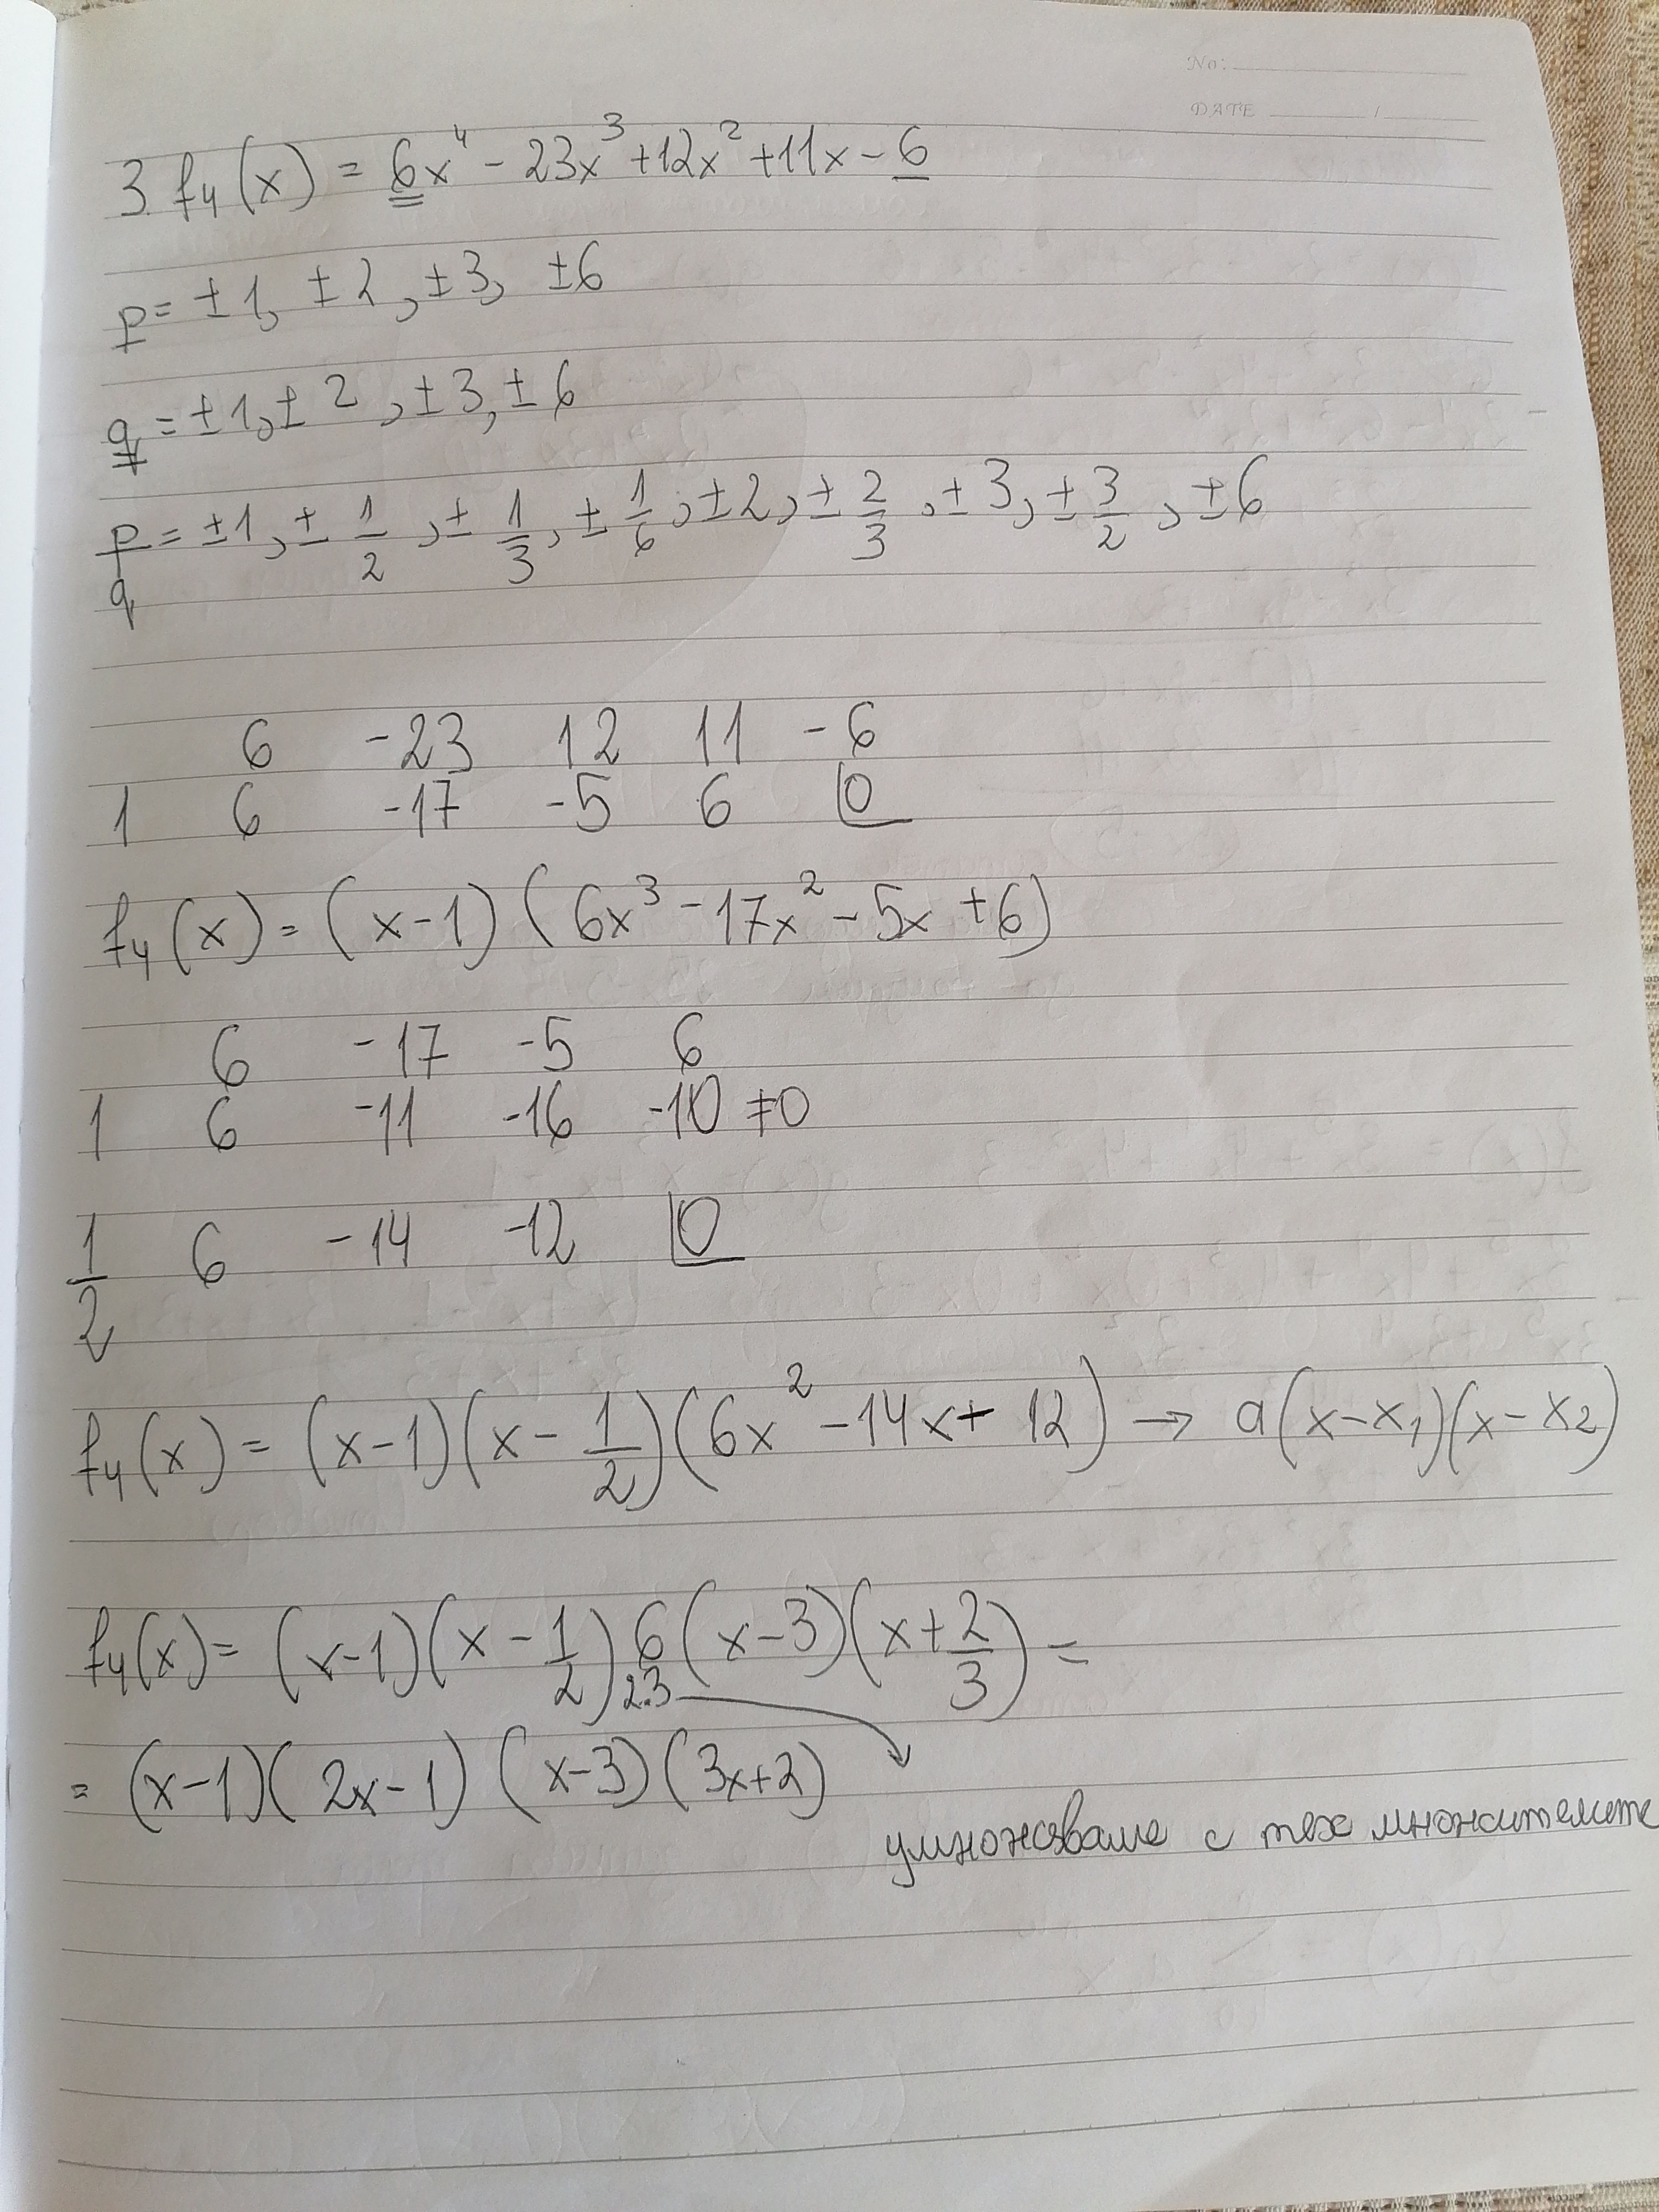 No:
DATE /
3. f₄(x) = 6x⁴ - 23x³ + 12x² + 11x - 6
p = ±1, ±2, ±3, ±6
q = ±1, ±2, ±3, ±6
p/q = ±1, ± 1/2, ± 1/3, ± 1/6, ±2, ± 2/3, ±3, ± 3/2, ±6
6 -23 12 11 -6
1 6 -17 -5 6 0
f₄(x) = (x-1)(6x³ - 17x² - 5x + 6)
6 -17 -5 6
1 6 -11 -16 -10 ≠0
1/2 6 -14 -12 0
f₄(x) = (x-1)(x - 1/2)(6x² - 14x + 12) → a(x-x₁)(x-x₂)
f₄(x) = (x-1)(x - 1/2) 6 (x-3)(x + 2/3) =
2.3
= (x-1)(2x-1)(x-3)(3x+2)
умножаваме с тех множителите